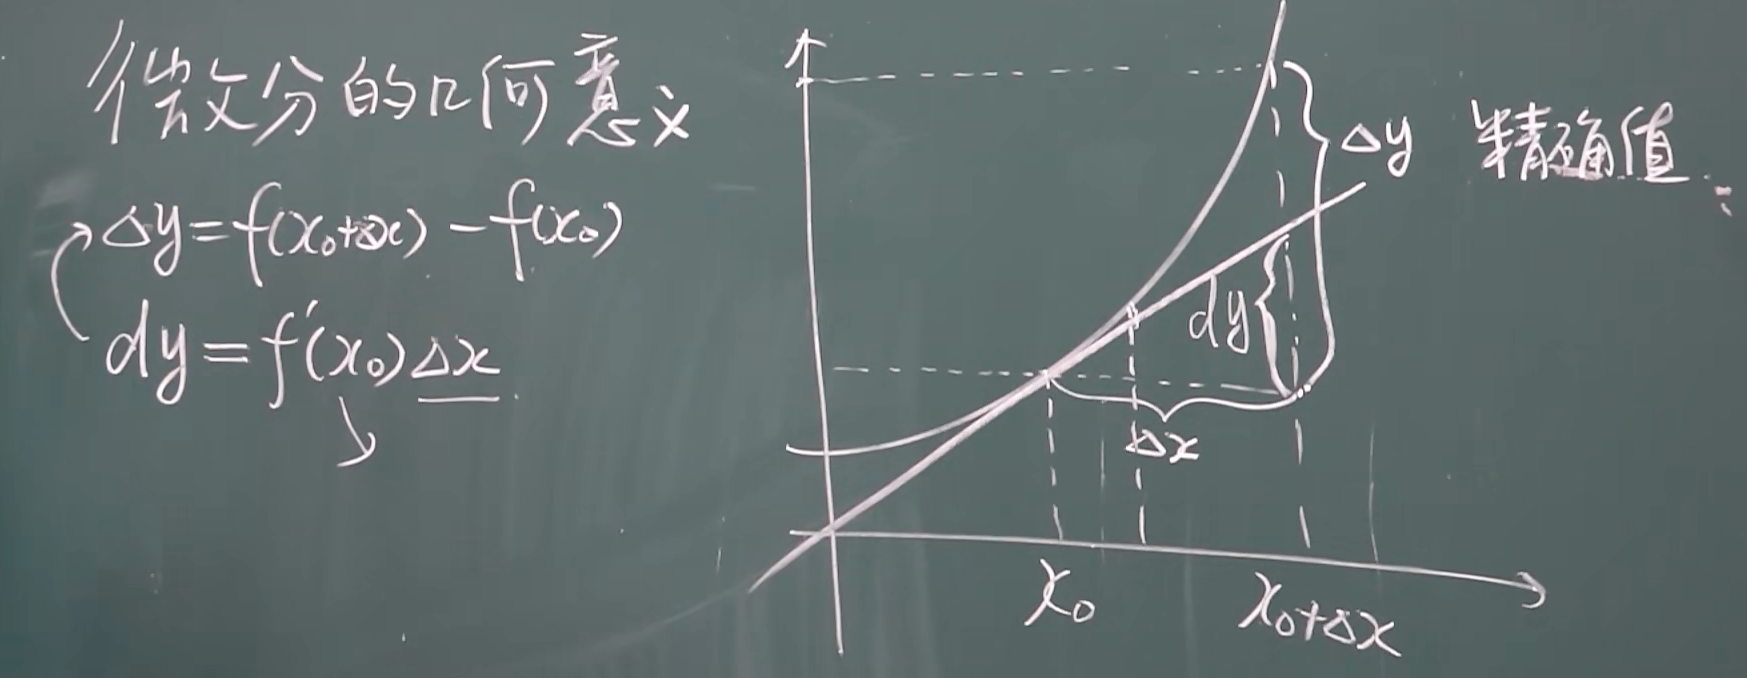 微分的几何意义
Δy=f(x₀+Δx)-f(x₀)
dy=f'(x₀)Δx
Δy 精确值
dy
Δx
x₀
x₀+Δx